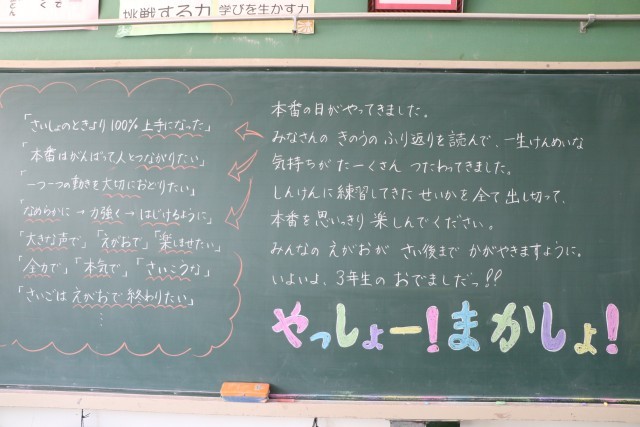 挑戦する力
学びを生かす力
「さいしょのときより100%上手になった」
「本番はがんばって人とつながりたい」
「一つ一つの動きを大切におどりたい」
「なめらかに→力強く→はじけるように」
「大きな声で」「えがおで」「楽しませたい」
「全力で」「本気で」「さいこうな」
「さいごはえがおで終わりたい」
⋮
本番の日がやってきました。
みなさんの きのうの ふり返りを読んで、一生けんめいな
気持ちが たーくさん つたわってきました。
しんけんに練習してきた せいかを全て出し切って、
本番を思いっきり楽しんでください。
みんなの えがおが さい後まで かがやきますように。
いよいよ、3年生の おでましだっ!!
やっしょー!まかしょ!